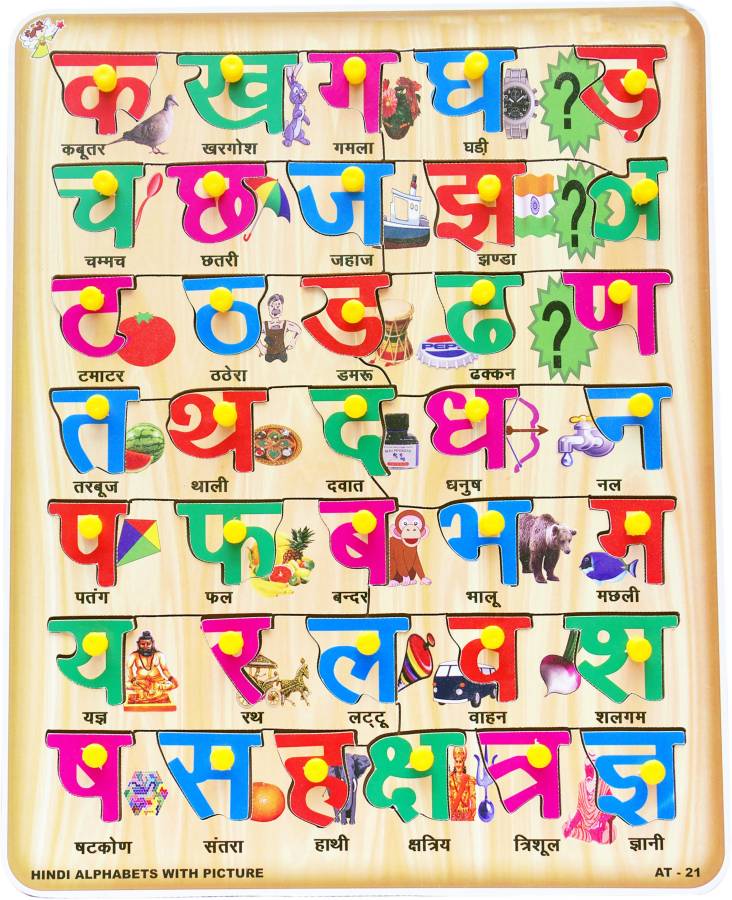 क ख ग घ ? ड़
कबूतर खरगोश गमला घड़ी
च छ ज झ ? ञ
चम्मच छतरी जहाज झण्डा
ट ठ ड ढ ? ण
टमाटर ठठेरा डमरू ढक्कन
त थ द ध न
तरबूज थाली दवात धनुष नल
प फ ब भ म
पतंग फल बन्दर भालू मछली
य र ल व श
यज्ञ रथ लट्टू वाहन शलगम
ष स ह क्ष त्र ज्ञ
षटकोण संतरा हाथी क्षत्रिय त्रिशूल ज्ञानी
HINDI ALPHABETS WITH PICTURE AT - 21